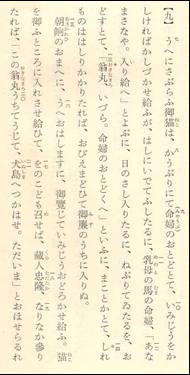 【九】　うへにさぶらふ御猫は、かうぶりにて命婦のおとどとて、いみじうをか
しければかしづかせ給ふが、はしにいでてふしたるに、乳母の馬の命婦、「あな
まさなや。入り給へ」とよぶに、日のさし入りたるに、ねぶりてゐたるを、お
どすとて、「翁丸、いづら。命婦のおとどくへ」といふに、まことかとて、しれ
ものははしりかかりたれば、おびえまどひて御簾のうちに入りぬ。
朝餉のおまへに、うへおはしますに、御覽じていみじうおどろかせ給ふ。猫
を御ふところに入れさせ給ひて、をのこども召せば、藏人忠隆、なりなか參り
たれば、「この翁丸うちてうじて、犬島へつかはせ。ただいま」とおほせらるれ